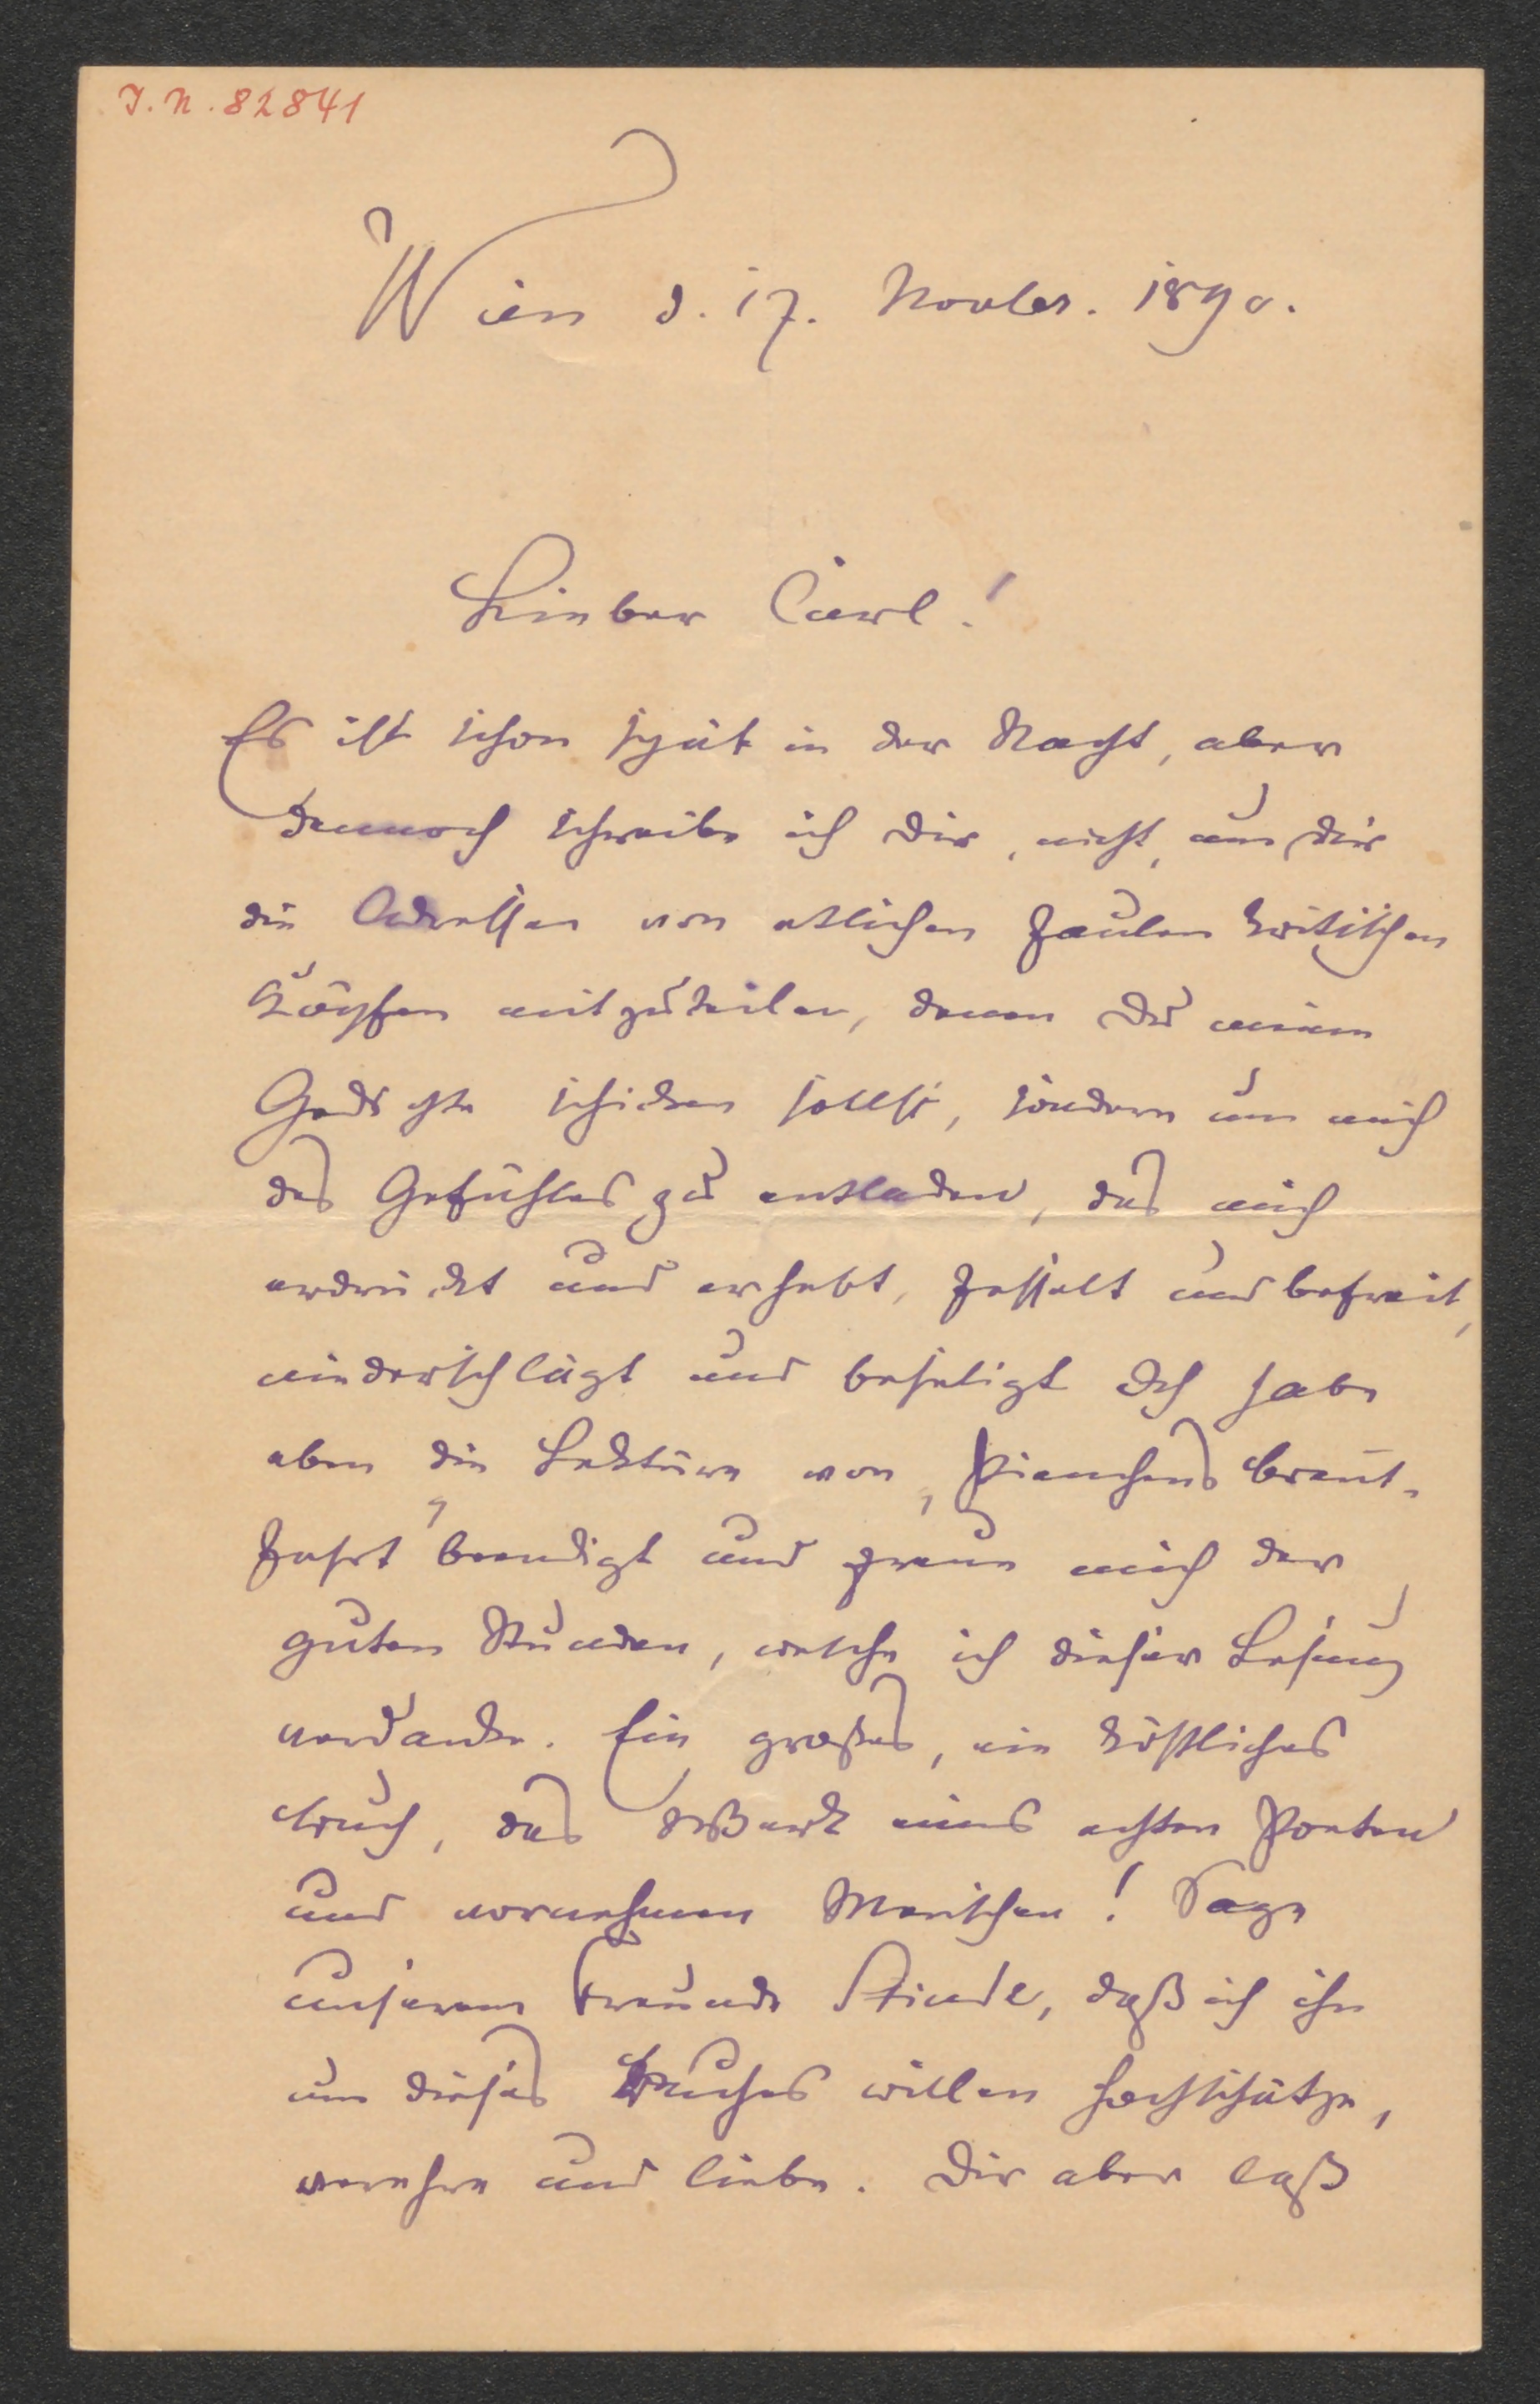 I. N. 82841
Wien d. 17. Novbr. 1890.
Lieber Carl!
Es ist schon spät in der Nacht, aber
dennoch schreibe ich Dir, nicht, um Dir
die Adressen von etlichen faulen kritischen
Köpfen mitzuteilen, denen Du meine
Gedichte schicken sollst, sondern um mich
des Gefühles zu entladen, das mich
erdrückt und erhebt, fesselt und befreit,
niederschlägt und beseligt Ich habe
eben die Lektüre von „Pienchens Braut-
fahrt" beendigt und freue mich der
guten Stunden, welche ich dieser Lesung
verdanke. Ein großes, ein köstliches
Buch, das Werk eines echten Poeten
und vornehmen Menschen! Sage
unserem Freunde Stinde, daß ich ihn
um dieses Buches willen hochschätze,
verehre und liebe. Dir aber laß